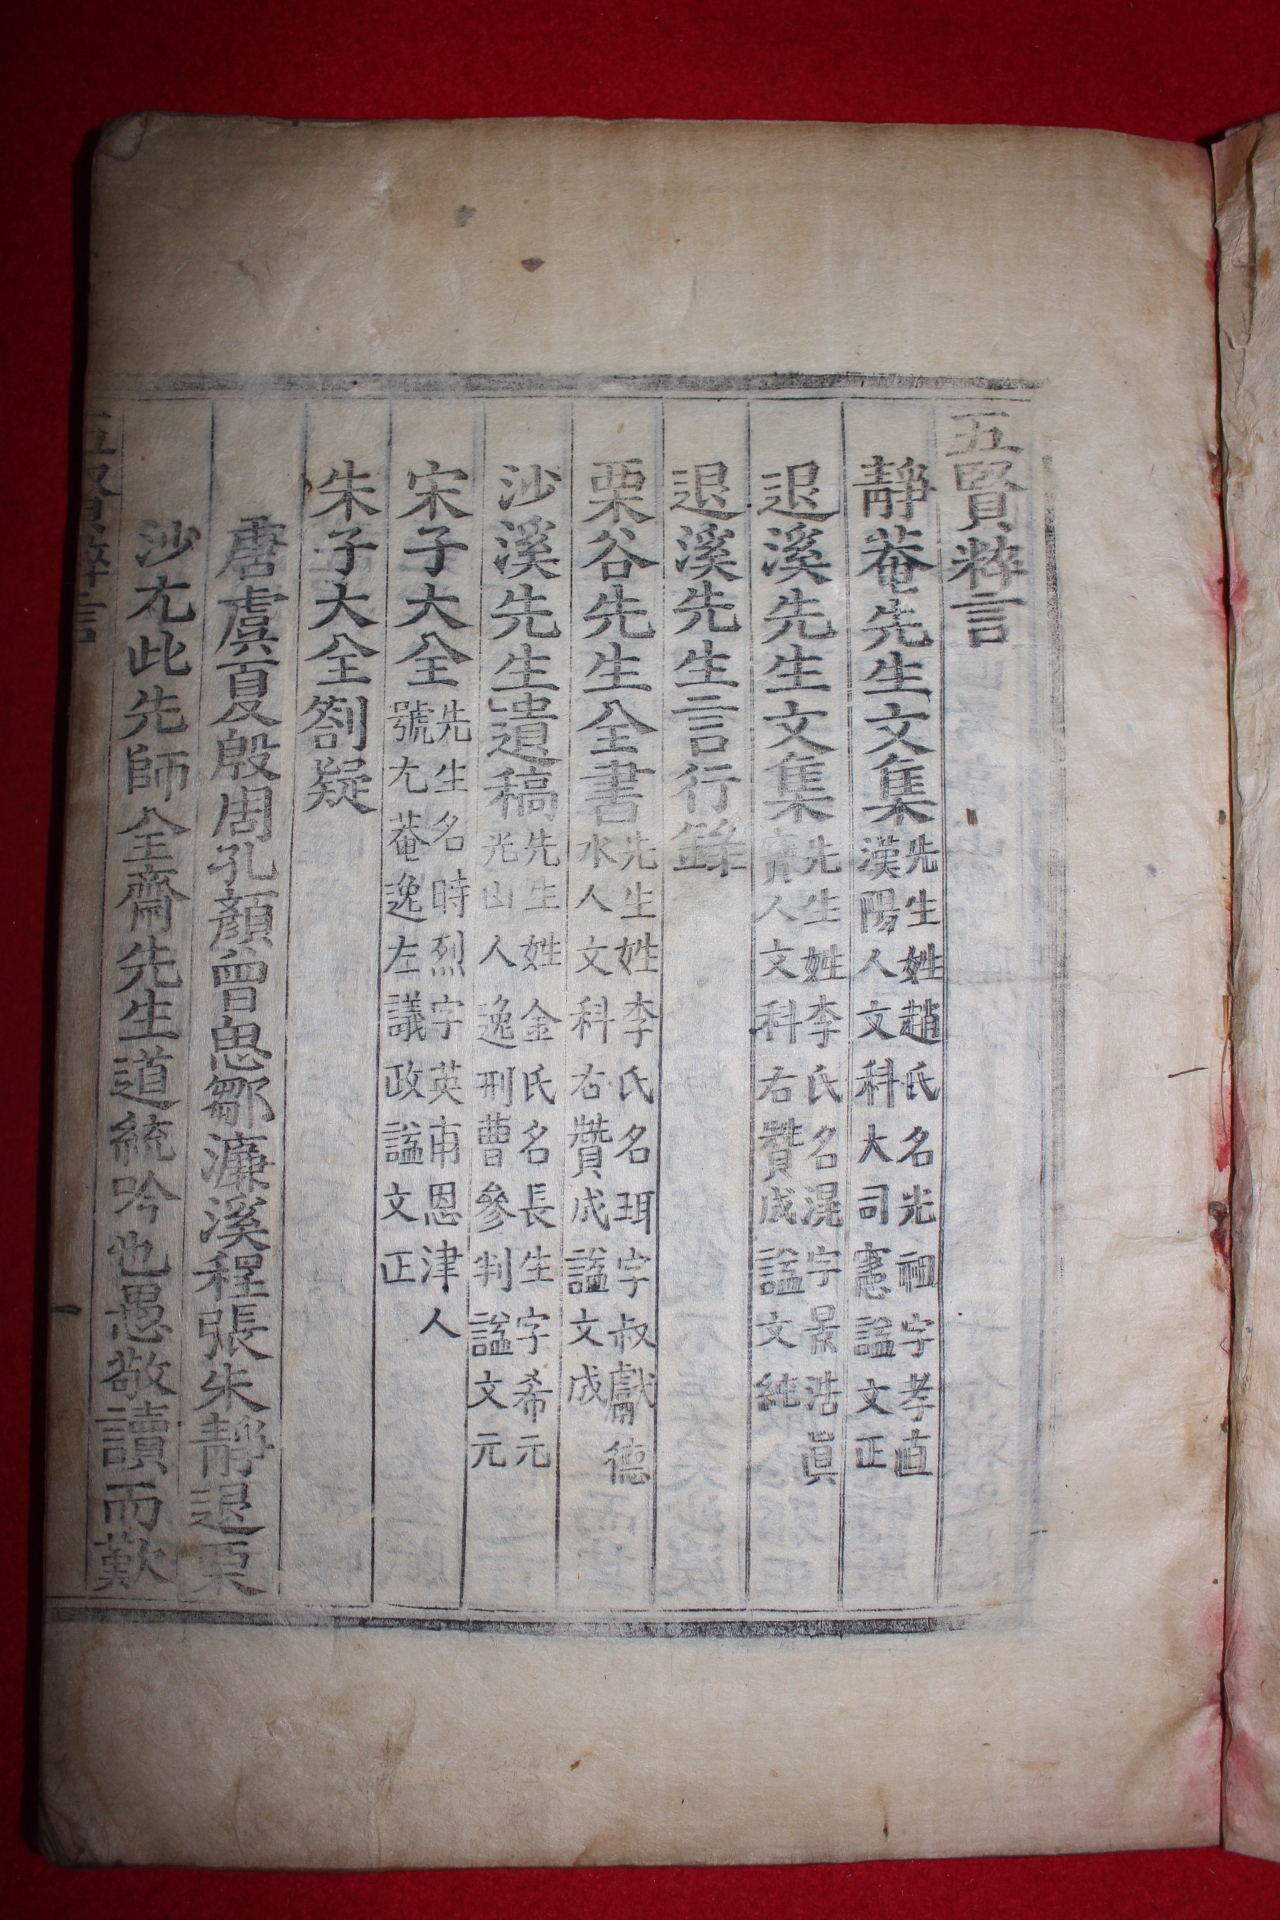 五賢粹言
靜菴先生文集先生姓趙氏名光祖字孝直
漢陽人文科大司憲謚文正
退溪先生文集先生姓李氏名滉字景浩眞
寳人文科右贊成謚文純
退溪先生言行錄
栗谷先生全書先生姓李氏名珥字叔獻德
水人文科右贊成謚文成
沙溪先生遺稿先生姓金氏名長生字希元
光山人逸刑曹參判謚文元
宋子大全先生名時烈字英甫恩津人
號尤菴逸左議政謚文正
朱子大全劄疑
唐虞夏殷周孔顏曾思鄒濂溪程張朱靜退栗
沙尤此先師全齋先生道統吟也愚敬讀而歎
五賢粹言
一